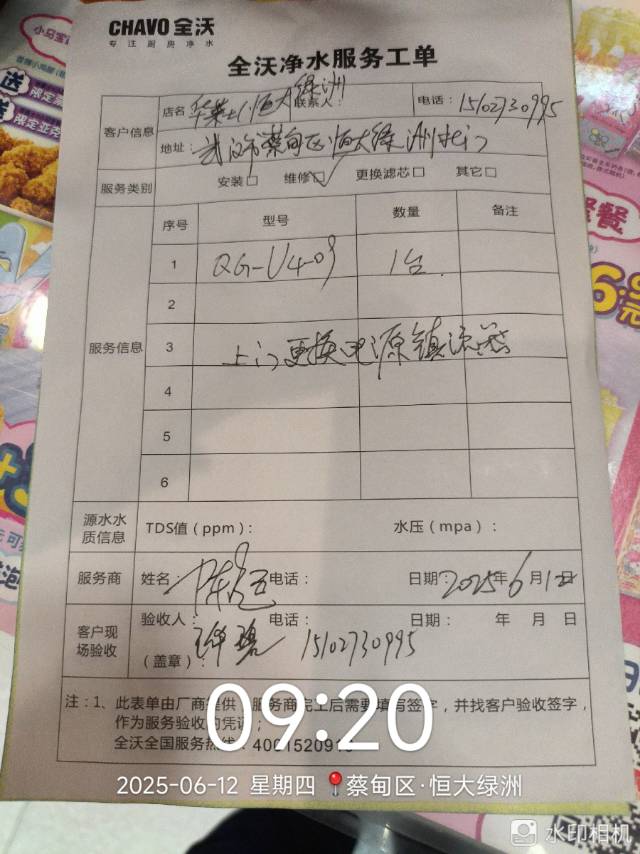 CHAVO 全沃
专注厨房净水
全沃净水服务工单
客户信息
店名 华莱士恒大绿洲 联系人： 电话：15102730995
地址：武汉市蔡甸区恒大绿洲北门
服务类别 安装□ 维修□✓ 更换滤芯□ 其它□
服务信息
序号 型号 数量 备注
1 QG-U4-09 1台
2
3 上门更换电源镇流器
4
5
6
源水水质信息 TDS值（ppm）： 水压（mpa）：
服务商 姓名： 电话： 日期：2025年6月12日
客户现场验收 验收人： 电话： 日期： 年 月 日
（盖章） 15102730995
注：1、此表单由厂商提供，服务商完工后需要填写签字，并找客户验收签字，
作为服务验收的凭证；
全沃全国服务热线：400152091
09:20
2025-06-12 星期四 蔡甸区·恒大绿洲
水印相机
小马宝
送
限定
限定亚克
套餐
6元